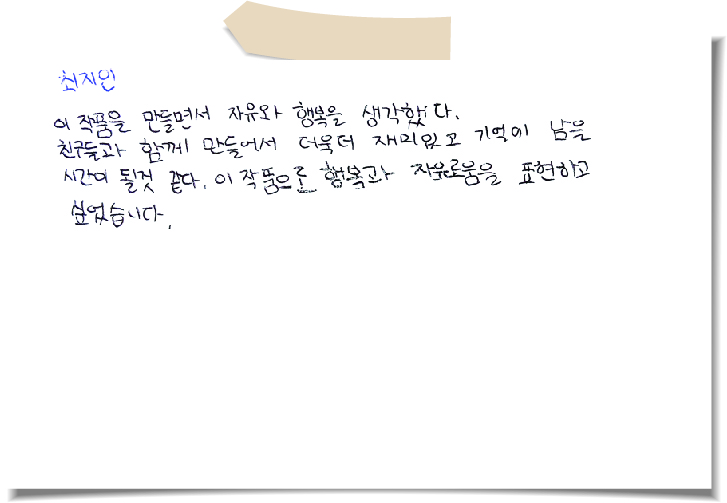 최지인
이 작품을 만들면서 자유와 행복을 생각했다.
친구들과 함께 만들어서 더욱더 재미있고 기억에 남을
시간이 될것 같다. 이 작품으로 행복과 자유로움을 표현하고
싶었습니다.